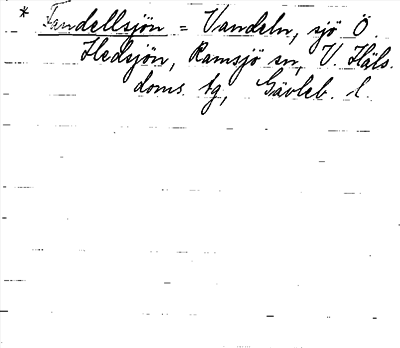 * Fandellsjön = Vandeln, sjö Ö.
Hedsjön, Ramsjö sn, V. Häls.
doms. tg, Gävleb. l.